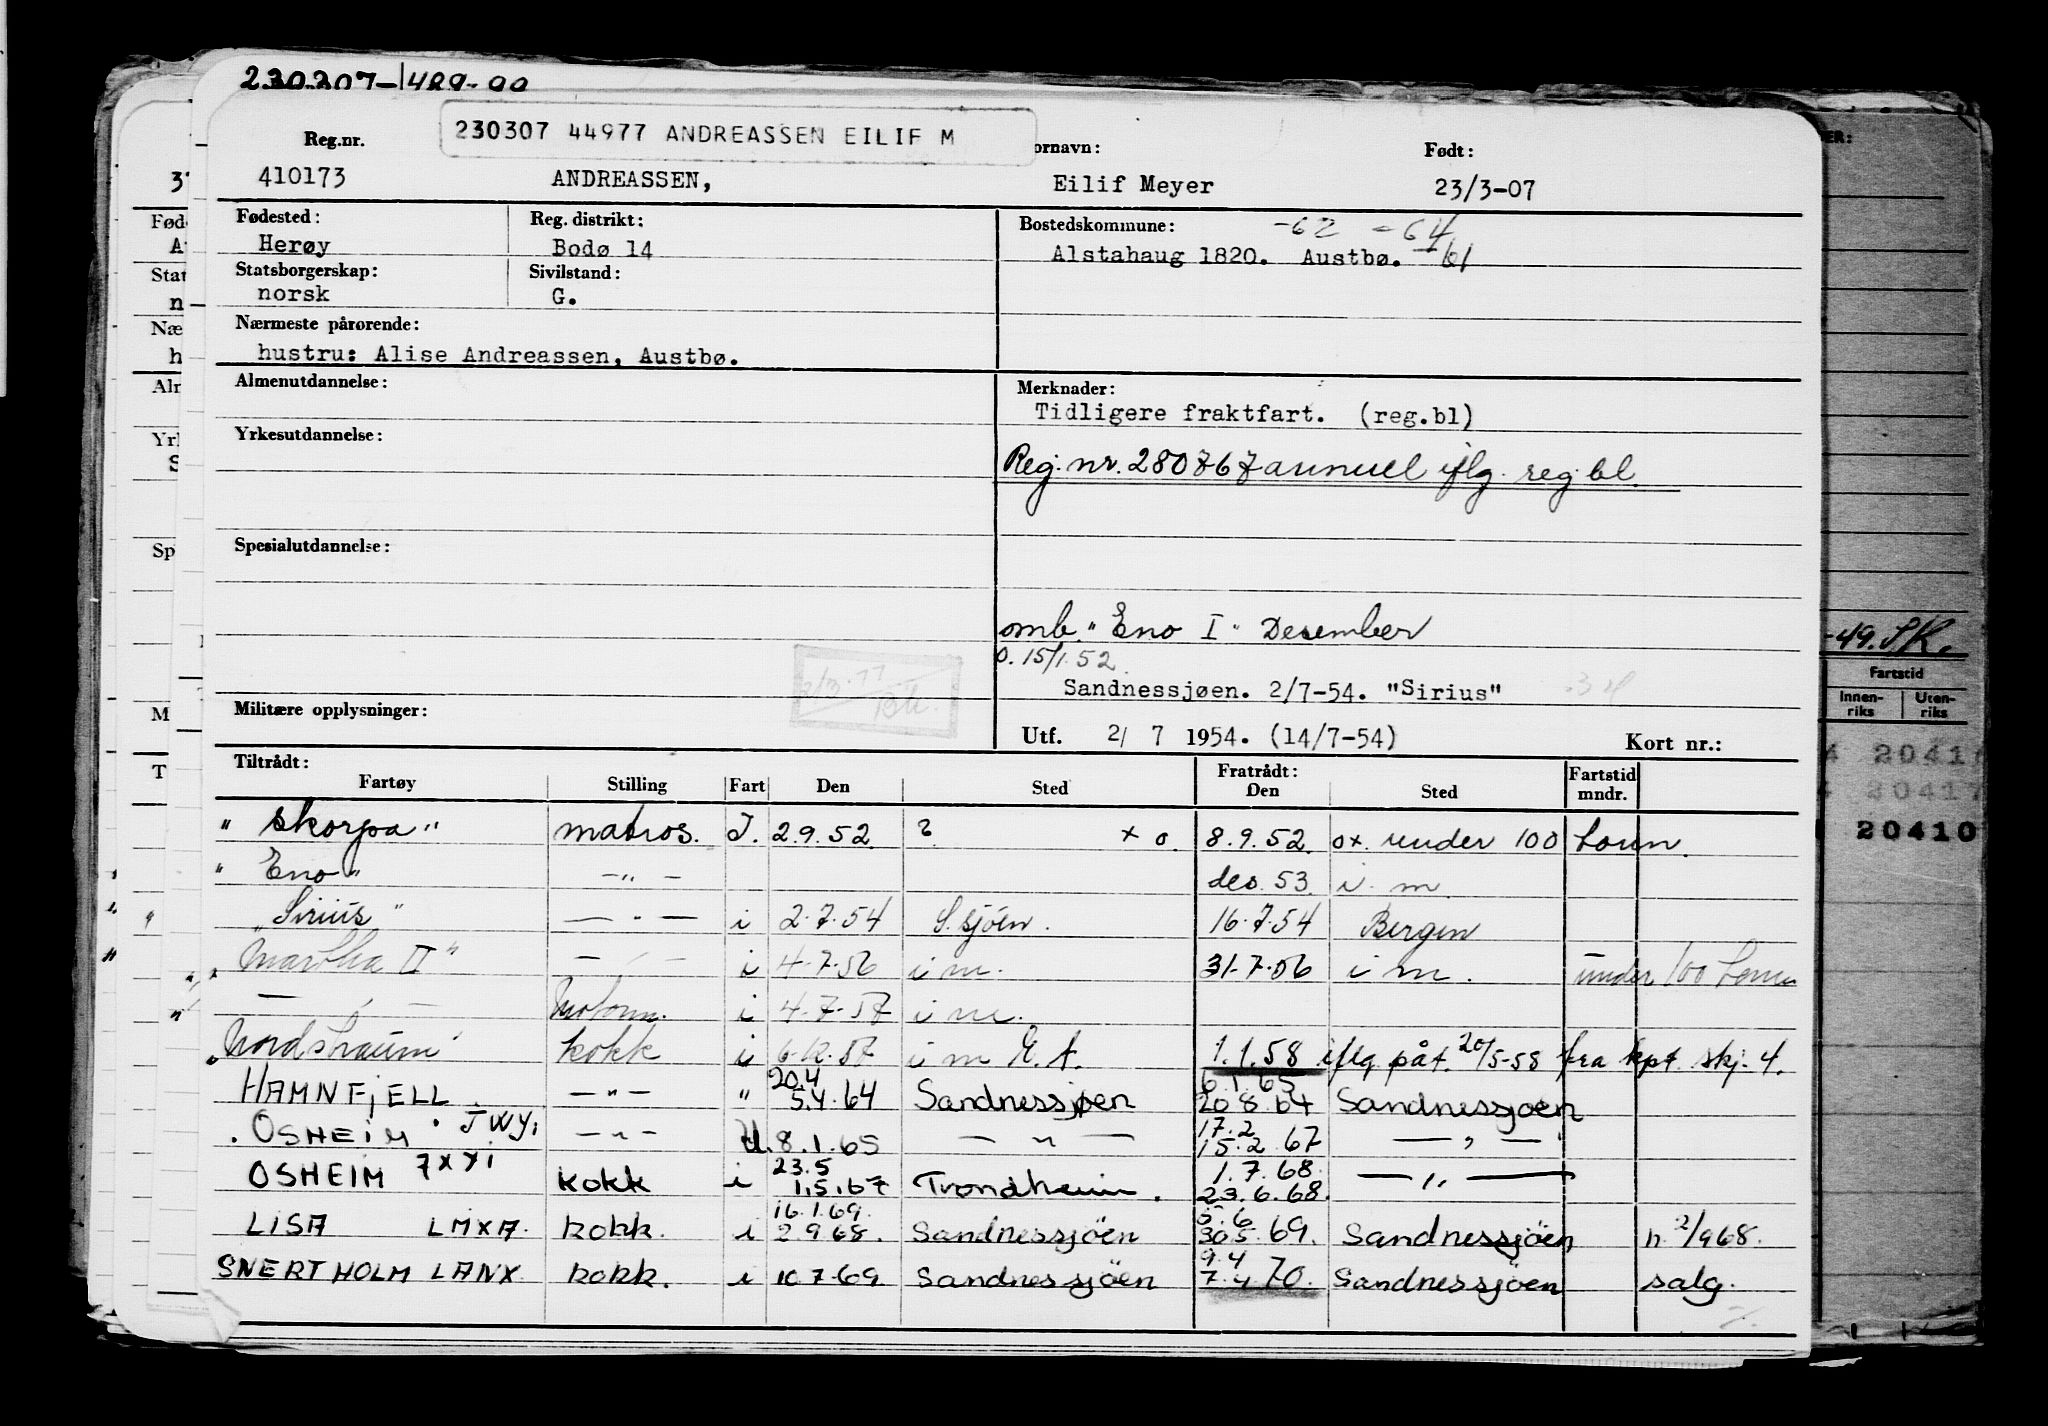 230307-1489-00
230307 44977 ANDREASSEN EILIF M
Reg.nr. ornavn: Født:
410173 ANDREASSEN, Eilif Meyer 23/3-07
Fødested: Reg. distrikt: Bostedskommune: -62 -64
Herøy Bodø 14 Alstahaug 1820. Austbø. -61
Statsborgerskap: Sivilstand:
norsk G.
Nærmeste pårørende:
hustru: Alise Andreassen, Austbø.
Almenutdannelse: Merknader:
Tidligere fraktfart. (reg.bl)
Yrkesutdannelse:
Reg. nr. 280767 annuel iflg. reg bl.
Spesialutdannelse:
omb. "Eno I" Desember
o. 15/1.52
Sandnessjøen. 2/7-54. "Sirius"
Militære opplysninger:
Utf. 2/ 7 1954. (14/7-54) Kort nr.:
Tiltrådt: Fratrådt: Fartstid
Fartøy Stilling Fart Den Sted Den Sted mndr.
"Skorpa" matros. I. 2.9.52 ? x o. 8.9.52. ox. under 100 tonn.
"Eno" -"- des. 53. i. m
"Sirius" -"- i 2.7.54 S.sjöen. 16.7.54 Bergen
"Martha II" -"- i 4.7.56 i m. 31.7.56 i m. under 100 tonn
-"- Motorm. i 4.7.57 i m.
"Nordstraum" kokk i 6.12.57 i m 1.1.58 iflg påt. 20/5-58 fra kpt. skj. 4.
20.4 6.1.65
HAMNFJELL -"- " 5.4.64 Sandnessjøen 20.8.64 Sandnessjøen
17.2
OSHEIM JWYi -"- U. 8.1.65 -"- 15.2.67 -"-
23.5 1.7.68.
OSHEIM JXYi kokk i 1.5.67 Trondheim. 23.6.68. -"-
16.1.69. 5.6
LISA LMXA. kokk. i 2.9.68. Sandnessjöen 30.5.69. Sandnessjöen h. 2/968.
9.4
SVERTHOLM LANX kokk. i 10.7.69 Sandnessjöen 7.4.70. Sandnessjöen salg.
-49. SK.
Fartstid
Innen-riks Uten-riks
20417
20410